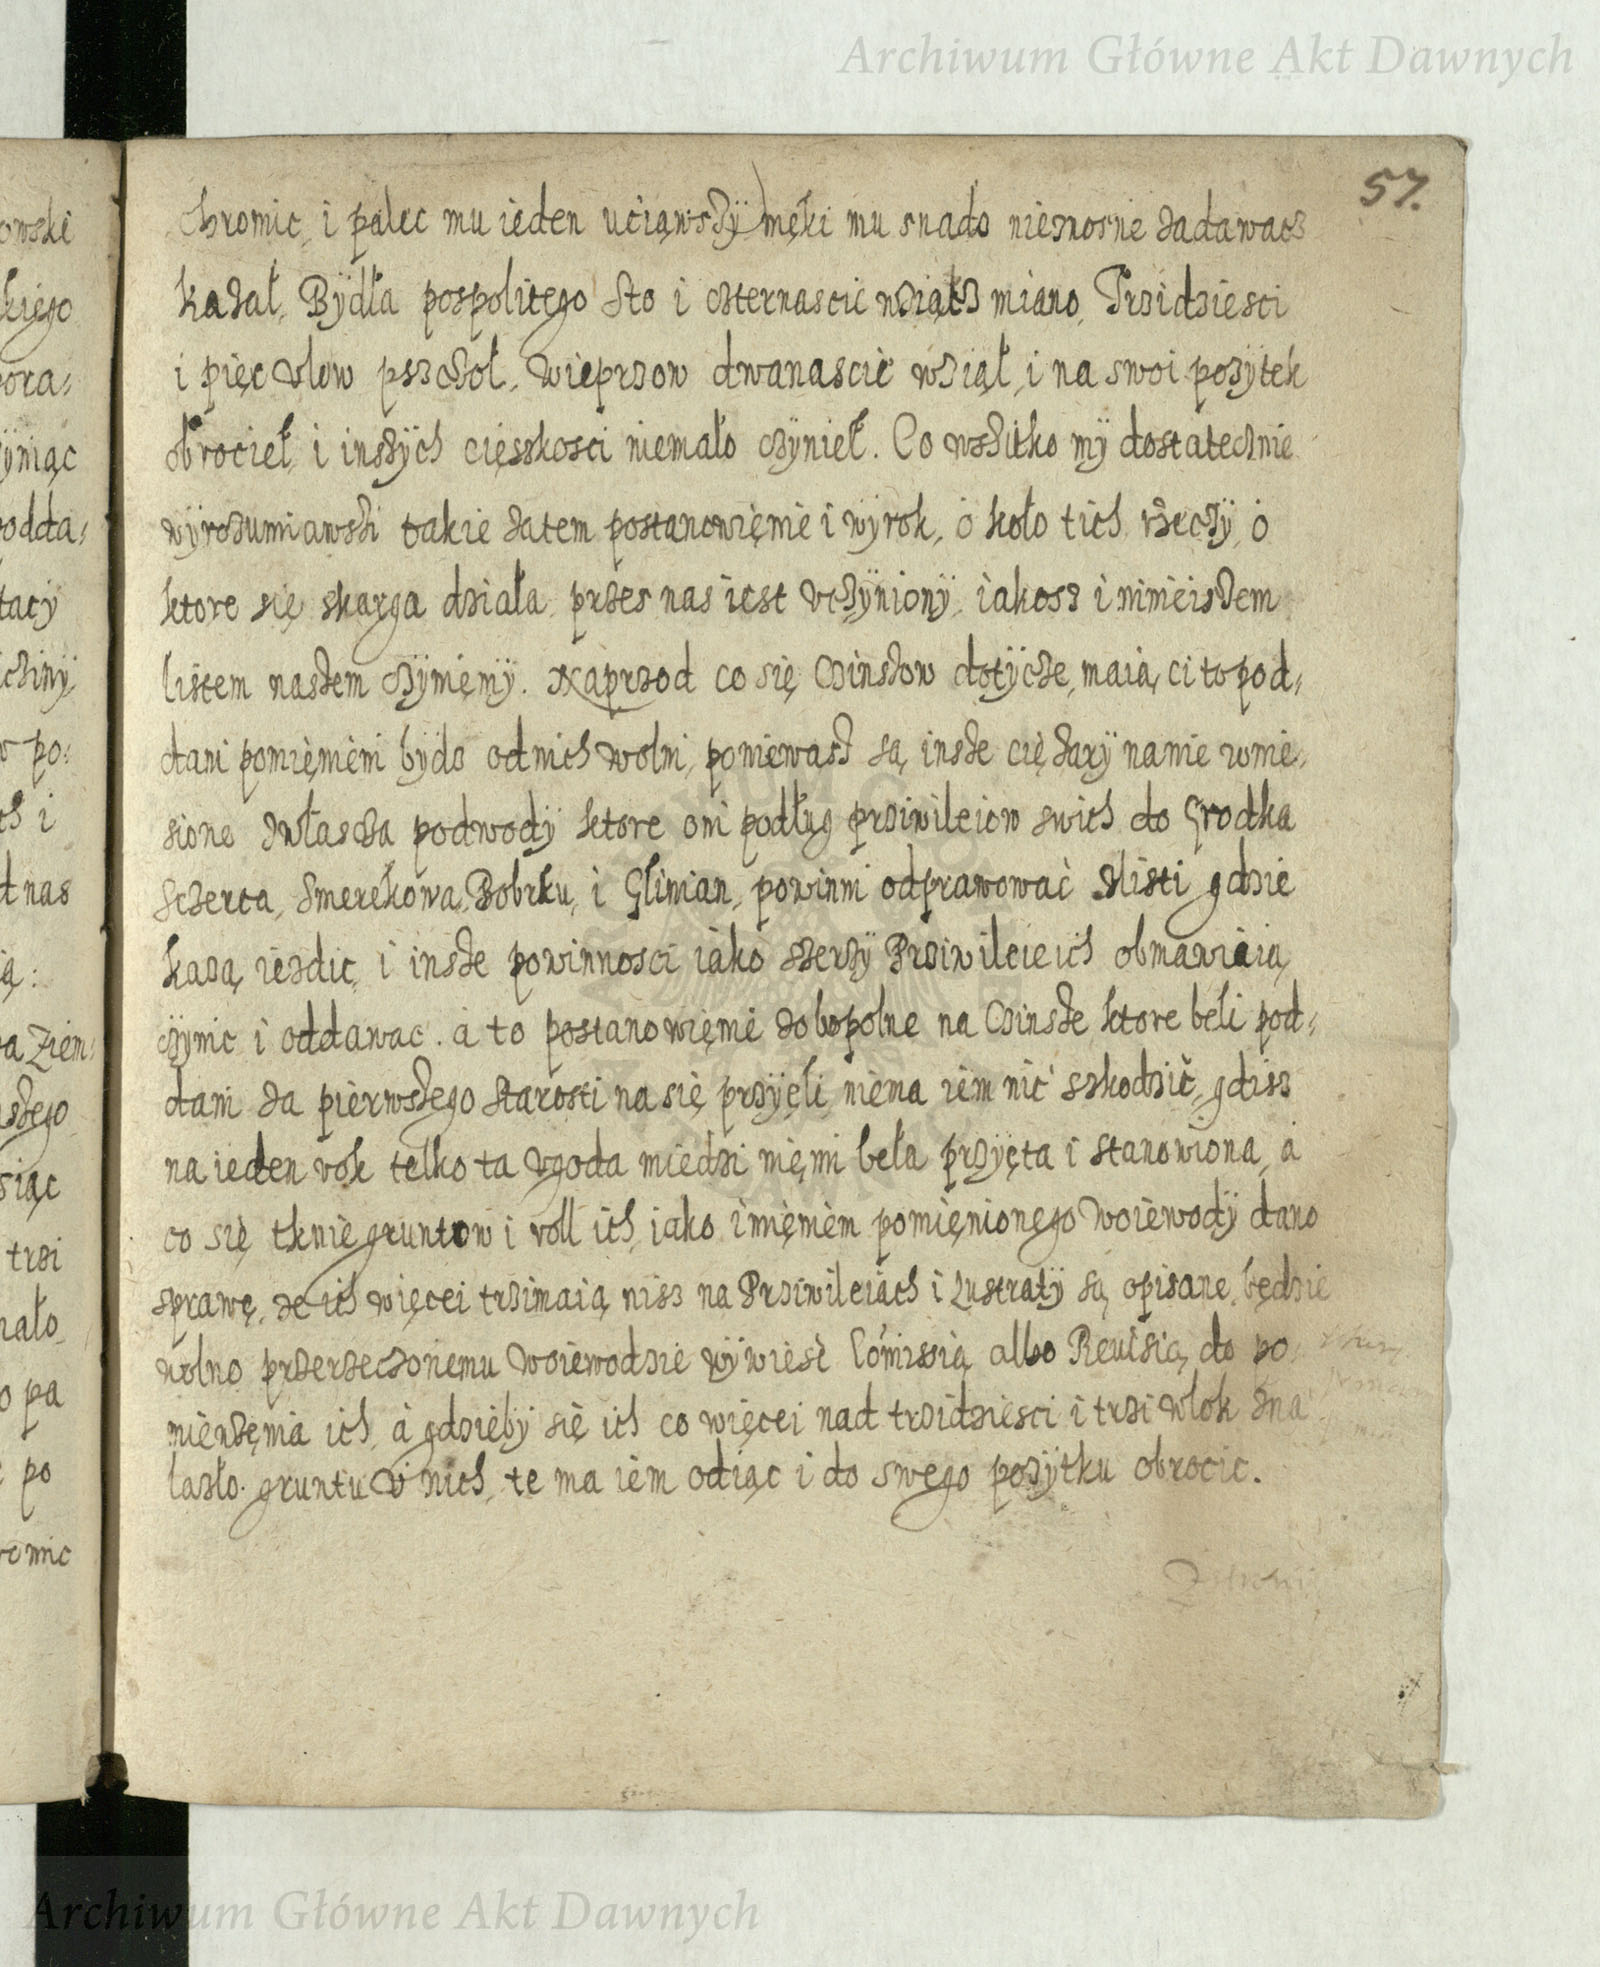 Archiwum Główne Akt Dawnych
57.
chromic, i palec mu ieden uciąwszÿ męki mu snado nieznosne zadawacz
kazał, Bÿdła pospolitego sto i czternascie wziącz miano, Trzidziesci
i pięc Vlow pszczoł, Wieprzow dwanascie wziął, i na swoi pozÿtek
obrocieł, i inszÿch cięszkosci niemało czÿnieł. Co wszitko mÿ dostatecznie
wÿrozumiawszi takie zatem postanowięnie i wÿrok, o koło tich rzeczÿ, o
ktore się skarga działa, przes nas iest vczÿnionÿ, iakosz i ninieiszem
listem naszem czÿnięmÿ. Naprzod co się Czinszow dotÿcze, maią ci to pod=
dani pomięnieni bÿdz od nich wolni, poniewasz są insze ciężarÿ na nie wnie=
sione zwłascza podwodÿ ktore oni podług prziwileiow swich do Grodka
Sczerca, Smerekowa, Bobrku, i Glinian, powinni odprawować Z listi gdzie
każą iezdic, i insze powinnosci iako szerzÿ Prziwileie ich obmawiaią,
czÿnic i oddawac. a to postanowięnie dobopolne na Czinsze ktore beli pod=
dani za pierwszego Starosti na się przÿęli, niema iem nic szkodzić, gdisz
na ieden rok telko ta vgoda miedzi nięmi beła przÿęta i stanowiona, a
co się tknie gruntow i roll ich, iako imięniem pomięnionego Woiewodÿ dano
sprawę, że ich więcei trzimaią nisz na Prziwileiach i Lustratÿ są opisane, będzie
wolno przerzeczonemu Woiewodzie wÿwiesć Comissią albo Reuisią, do po=
mierzęnia ich, a gdziebÿ się ich co więcei nad trzidziesci i trzi włok zna
lazło gruntu V nich, te ma iem odiąc i do swego pozÿtku obrocic.
owski
kięgo
pora=
ÿniąc
podda=
tacÿ
w po=
ch i
d nas
ią:
ra Ziem=
szego
siąc
trzi
mało
o pa
po
romic
Archiwum Główne Akt Dawnych